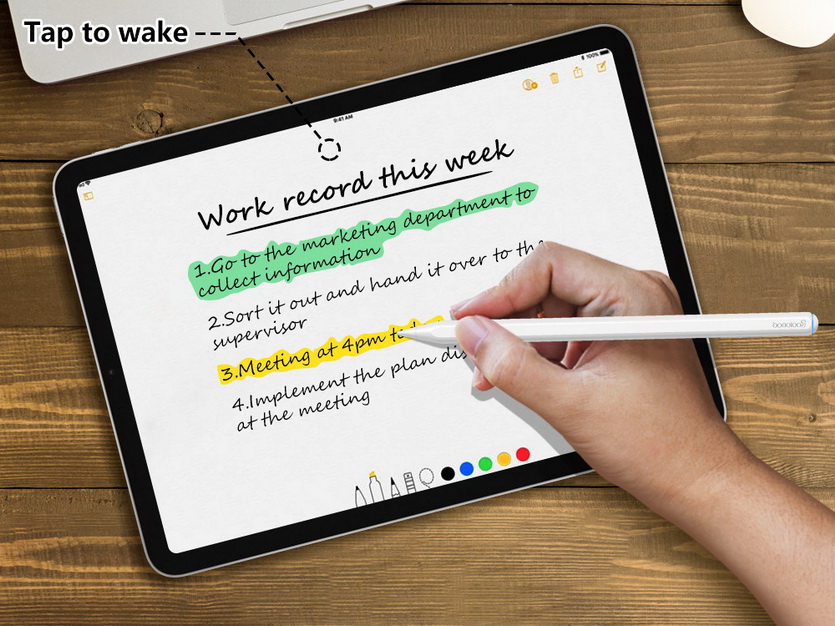 Tap to wake
100%
9:41 AM
Work record this week
1.Go to the marketing department to
collect information
2.Sort it out and hand it over to the
supervisor
3.Meeting at 4pm
4.Implement the plan
at the meeting